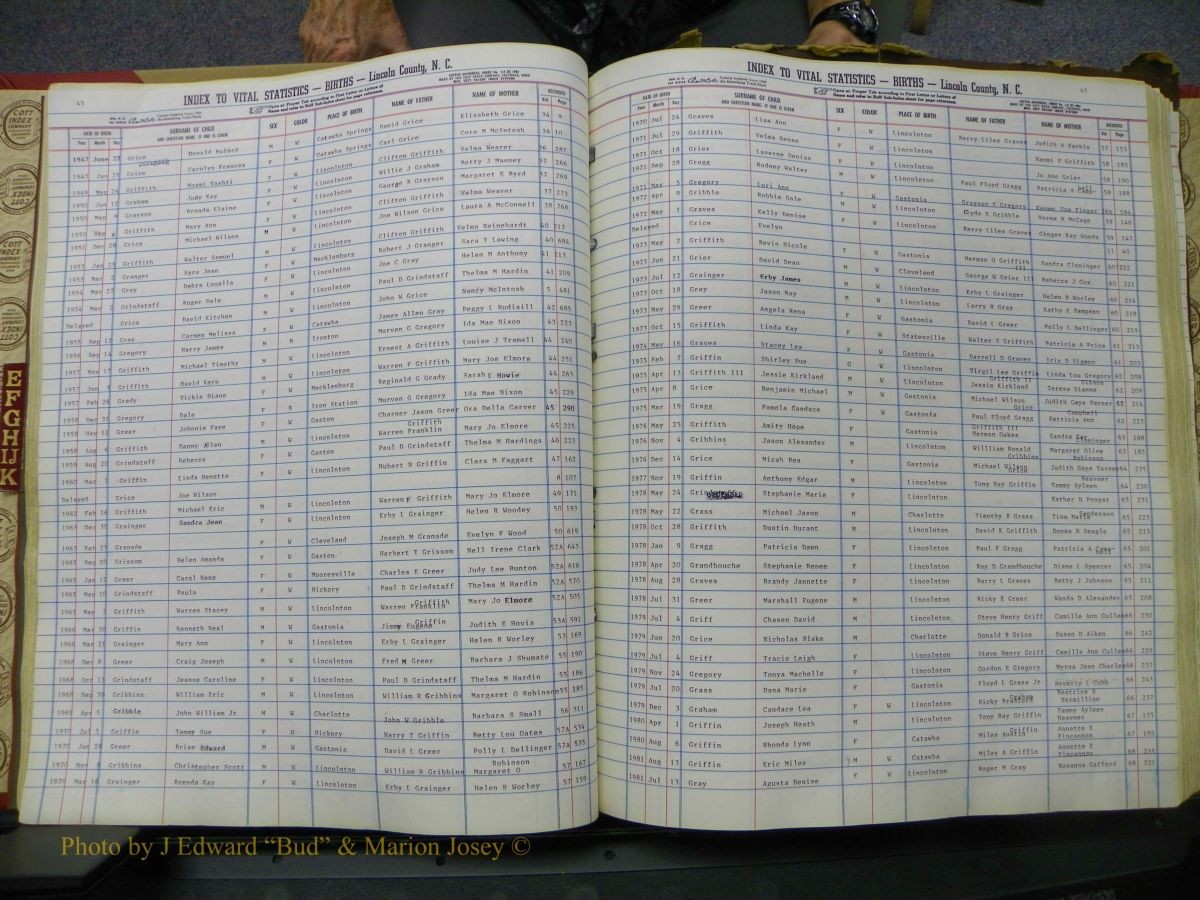 45
INDEX TO VITAL STATISTICS — BIRTHS — Lincoln County, N. C.
DATE OF BIRTH
Year Month Day
SURNAME OF CHILD
AND CHRISTIAN NAME, IF ONE IS GIVEN
SEX
COLOR
PLACE OF BIRTH
NAME OF FATHER
NAME OF MOTHER
RECORDED
Vol. Page
1947 June 22 Grice Donald Buford M W Catawba Springs David Grice Elizabeth Grice 34 9
1947 Jan 25 Grice Carolyn Frances F W Catawba Springs Carl Grice Cora M McIntosh 34 10
1948 May 24 Griffith Naomi Vashti F W Lincolnton Clifton Griffith Velma Wearer 36 287
1950 June 12 Graham Judy Kay Lincolnton Willie J Graham Betty J Mauney 37 266
1950 May 4 Grayson Brenda Elaine Lincolnton George B Grayson Margaret E Byrd 37 269
1950 Sep 6 Griffith Mary Ann Lincolnton Clifton Griffith Velma Weaver 37 273
1951 Dec 28 Grice Michael Wilson Lincolnton Joe Wilson Grice Laura A McConnell 38 768
1953 Jan 23 Griffith Walter Samuel Lincolnton Clifton Griffith Velma Reinehardt 40 217
1953 Mar 2 Granger Sara Jean Mecklenburg Robert J Granger Sara T Lawing 40 684
1954 Mar 23 Gray Debra Louella Lincolnton Joe C Gray Helen M Anthony 41 213
1954 May 2 Grindstaff Roger Dale Lincolnton Paul D Grindstaff Thelma M Hardin 41 209
Delayed Grice David Kitchen John W Grice Nancy McIntosh 5 481
1955 Sep 12 Gray Carmen Melissa Catawba James Allen Gray Peggy L Rudisill 42 695
1956 Sep 14 Gregory Harry James Ironton Murven G Gregory Ida Mae Nixon 43 227
1957 Nov 17 Griffith Michael Timothy Lincolnton Ernest A Griffith Louise J Tramell 44 240
1957 Jun 5 Griffith David Vern Lincolnton Warren F Griffith Mary Joe Elmore 44 251
1957 Feb 26 Grady Vickie Diane Mecklenburg Reginald G Grady Sarah L Howie 44 263
1958 Dec 31 Gregory Dale Iron Station Murven G Gregory Ida Mae Nixon 45 229
1958 May 11 Greer Johnnie Faye Lincolnton Charner Jason Greer Ora Della Carver 45 290
1958 Aug 6 Griffith Danny Allen Gaston Warren Franklin Griffith Mary Jo Elmore 45 225
1959 Aug 20 Grindstaff Rebecca Lincolnton Paul D Grindstaff Thelma M Hardings 46 223
1960 Mar 7 Griffin Linda Denette Lincolnton Hubert N Griffin Clara M Faggart 47 162
Delayed Grice Joe Wilson 8 107
1962 Feb 16 Griffith Michael Eric Lincolnton Warren F Griffith Mary Jo Elmore 49 171
1963 Dec 30 Grainger Sandra Jean Lincolnton Erby L Grainger Helen R Woodey 50 193
1963 Feb 23 Granade F W Cleveland Joseph M Granade Evelyn F Wood 50 619
1965 Sep 20 Grissom Helen Amanda F W Gaston Herbert T Grissom Nell Irene Clark 52A 643
1965 Jan 12 Greer Carol Rene F W Mooresville Charles E Greer Judy Lee Runton 52A 616
1965 May 10 Grindstaff Paula F W Hickory Paul D Grindstaff Thelma M Hardin 52A 570
1965 May 3 Griffith Warren Stacey M W Lincolnton Warren Franklin Griffith Mary Jo Elmore 52A 505
1966 Mar 30 Griffin Kenneth Neal M W Gastonia Jimmy Eugene Griffin Judith E Hovis 53A 591
1966 Mar 21 Grainger Mary Ann F W Lincolnton Erby L Grainger Helen R Worley 53 169
1968 Dec 8 Greer Craig Joseph M W Lincolnton Fred M Greer Barbara J Shumate 55 190
1968 Oct 13 Grindstaff Jeanne Caroline F W Lincolnton Paul D Grindstaff Thelma M Hardin 55 186
1968 Sep 30 Gribbins William Eric M W Lincolnton William R Gribbins Margaret O Robinson 55 185
1969 Apr 5 Gribble John William Jr M W Charlotte John W Gribble Barbara S Small 56 311
1970 Jul 5 Griffin Tammy Sue F W Hickory Harry T Griffin Betty Lou Oates 57A 534
1970 Jun 28 Greer Brian Edward M W Gastonia David L Greer Polly L Dellinger 57A 535
1970 Nov 8 Gribbins Christopher Scott M W Lincolnton William R Gribbins Margaret O Robinson 57 167
1970 Mar 16 Grainger Brenda Kay F W Lincolnton Erby L Grainger Helen R Worley 57 159
INDEX TO VITAL STATISTICS — BIRTHS — Lincoln County, N. C.
45
DATE OF BIRTH
Year Month Day
SURNAME OF CHILD
AND CHRISTIAN NAME, IF ONE IS GIVEN
SEX
COLOR
PLACE OF BIRTH
NAME OF FATHER
NAME OF MOTHER
RECORDED
Vol. Page
1970 Jul 24 Graves Lisa Ann F W Lincolnton Barry Liles Graves Judith A Rankin 57 153
1971 Jul 29 Griffith Velma Renea Lincolnton Naomi V Griffith 58 185
1971 Oct 18 Grier Laverne Denisa Lincolnton Jo Ann Grier 58 190
1971 Sep 28 Gragg Rodney Walter Lincolnton Paul Floyd Gragg Patricia A 58 188
1971 May 5 Gregory Lori Ann Gastonia Grayson E Gregory Karan Sue Finger 58A 584
1972 Apr 9 Gribble Robbie Dale Lincolnton Clyde E Gribble Norma R McCage 59 146
1972 May 1 Graves Kelly Denise Lincolnton Barry Liles Graves Ginger Kay Woods 59 147
Delayed Grice Evelyn 11 40
1973 May 2 Griffith Bevin Nicole Gastonia Herman O Griffith III Sandra Cloninger 60 222
1973 Jun 21 Grier David Dean Cleveland George W Grier III Rebecca J Cox 60 221
1973 Jul 12 Grainger Erby James Lincolnton Erby L Grainger Helen R Worley 60 214
1973 Oct 18 Gray Jason Ray Lincolnton Larry R Gray Kathy E Sampson 60 218
1973 May 29 Greer Angela Rena Gastonia David L Greer Polly L Dellinger 60 219
1973 Oct 15 Griffith Linda Kay Statesville Walter S Griffith Patricia A Price 61 213
1974 May 16 Graves Stacey Lea Gastonia Darrell D Graves Iris D Sigmon 61 203
1975 Feb 7 Griffin Shirley Sue Lincolnton Virgil Lee Griffin Linda Lou Gregory 62 208
1975 Apr 13 Griffith III Jessie Kirkland Lincolnton Jessie Kirkland Griffith II Teresa Dianne Gibson 62 209
1975 Apr 8 Grice Benjamin Michael Gastonia Michael Wilson Grice Judith Gaye Varner 62 214
1975 Mar 19 Gragg Pamela Candace Gastonia Paul Floyd Gragg Patricia Ann Campbell 62 223
1976 May 25 Griffith Amity Hope Gastonia Herman Oakes Griffith III Sandra Kay Cloninger 63 188
1976 Nov 4 Gribbins Jason Alexander Lincolnton William Ronald Gribbins Margaret Olive Robinson 63 183
1976 Dec 14 Grice Micah Nea Gastonia Michael Wilson Grice Judith Gaye Varner 64 235
1977 Nov 19 Griffin Anthony Edgar Lincolnton Tony Ray Griffin Tammy Ayleen Heavner 64 230
1978 May 24 Stephanie Marie F Lincolnton Esther D Propst 65 231
1978 May 22 Grass Michael Jason M Charlotte Timothy B Grass Tina Marie Sanderson 65 223
1978 Oct 28 Griffith Dustin Durant M Lincolnton David K Griffith Donna R Seagle 65 215
1978 Jan 9 Gragg Patricia Dawn F Lincolnton Paul F Gragg Patricia A 65 201
1978 Apr 20 Grandbouche Stephanie Renee F Lincolnton Roy D Grandbouche Diane L Spencer 65 204
1978 Aug 28 Graves Brandy Jannette F Lincolnton Barry L Graves Betty J Johnson 65 211
1978 Jul 31 Greer Marshall Eugene M Lincolnton Ricky E Greer Wanda D Alexander 65 208
1979 Jul 4 Griff Chasen David M Lincolnton Steve Henry Griff Camille Ann Cullen 66 230
1979 Jun 20 Grice Nicholas Blake M Charlotte Donald B Grice Susan D Aiken 66 242
1979 Jul 4 Griff Tracie Leigh F Lincolnton Steve Henry Griff Camille Ann Cullen 66 229
1979 Nov 24 Gregory Tonya Machelle F Lincolnton Gordon E Gregory Myrna Jean Charles 66 237
1979 Jul 20 Grass Dana Marie F Gastonia Floyd L Grass Jr Beverly L Cobb 66 243
1979 Dec 3 Graham Candace Lea F W Lincolnton Ricky Bradford Graham Beatrice S Vermillion 66 237
1980 Apr 1 Griffin Joseph Heath M Lincolnton Tony Ray Griffin Tammy Ayleen Heavner 67 175
1980 Aug 6 Griffin Rhonda Lynn F Catawba Miles Austin Griffin Annette E Fincannon 67 198
1981 Aug 13 Griffin Eric Miles M W Catawba Miles A Griffin Annette E Fincannon 68 235
1981 Jul 13 Gray Agusta Denise F W Lincolnton Roger M Gray Rosanna Gafford 68 221
COTT INDEX COMPANY
E F G H I J K
Photo by J Edward “Bud” & Marion Josey ©